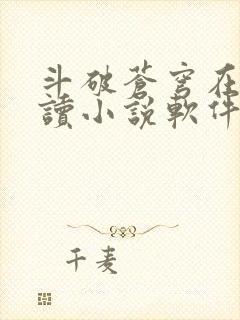 斗破蒼穹在
讀小說軟件
千麦